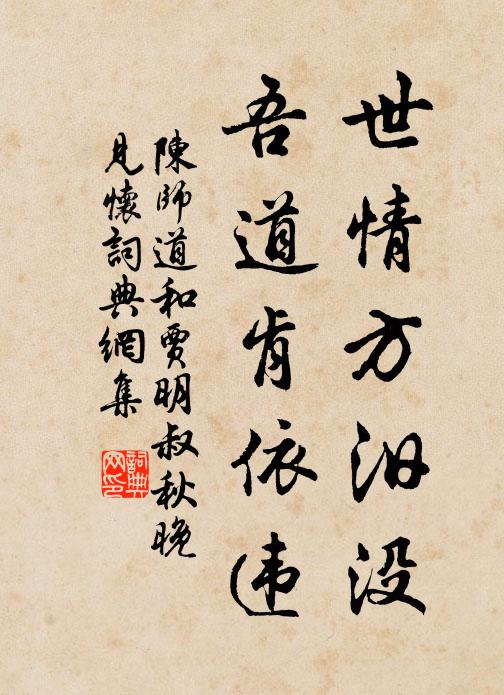 世情方汨没
吾道肯依违
陳師道和賈明叔秋晚
見懷詞典網集
詞典
网印